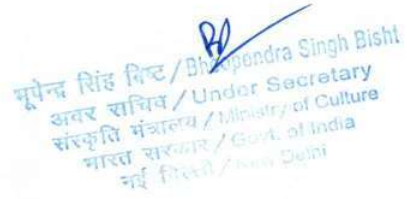 भूपेन्द्र सिंह बिष्ट / Bhoopendra Singh Bisht
अवर सचिव / Under Secretary
संस्कृति मंत्रालय / Ministry of Culture
भारत सरकार / Govt. of India
नई दिल्ली / New Delhi